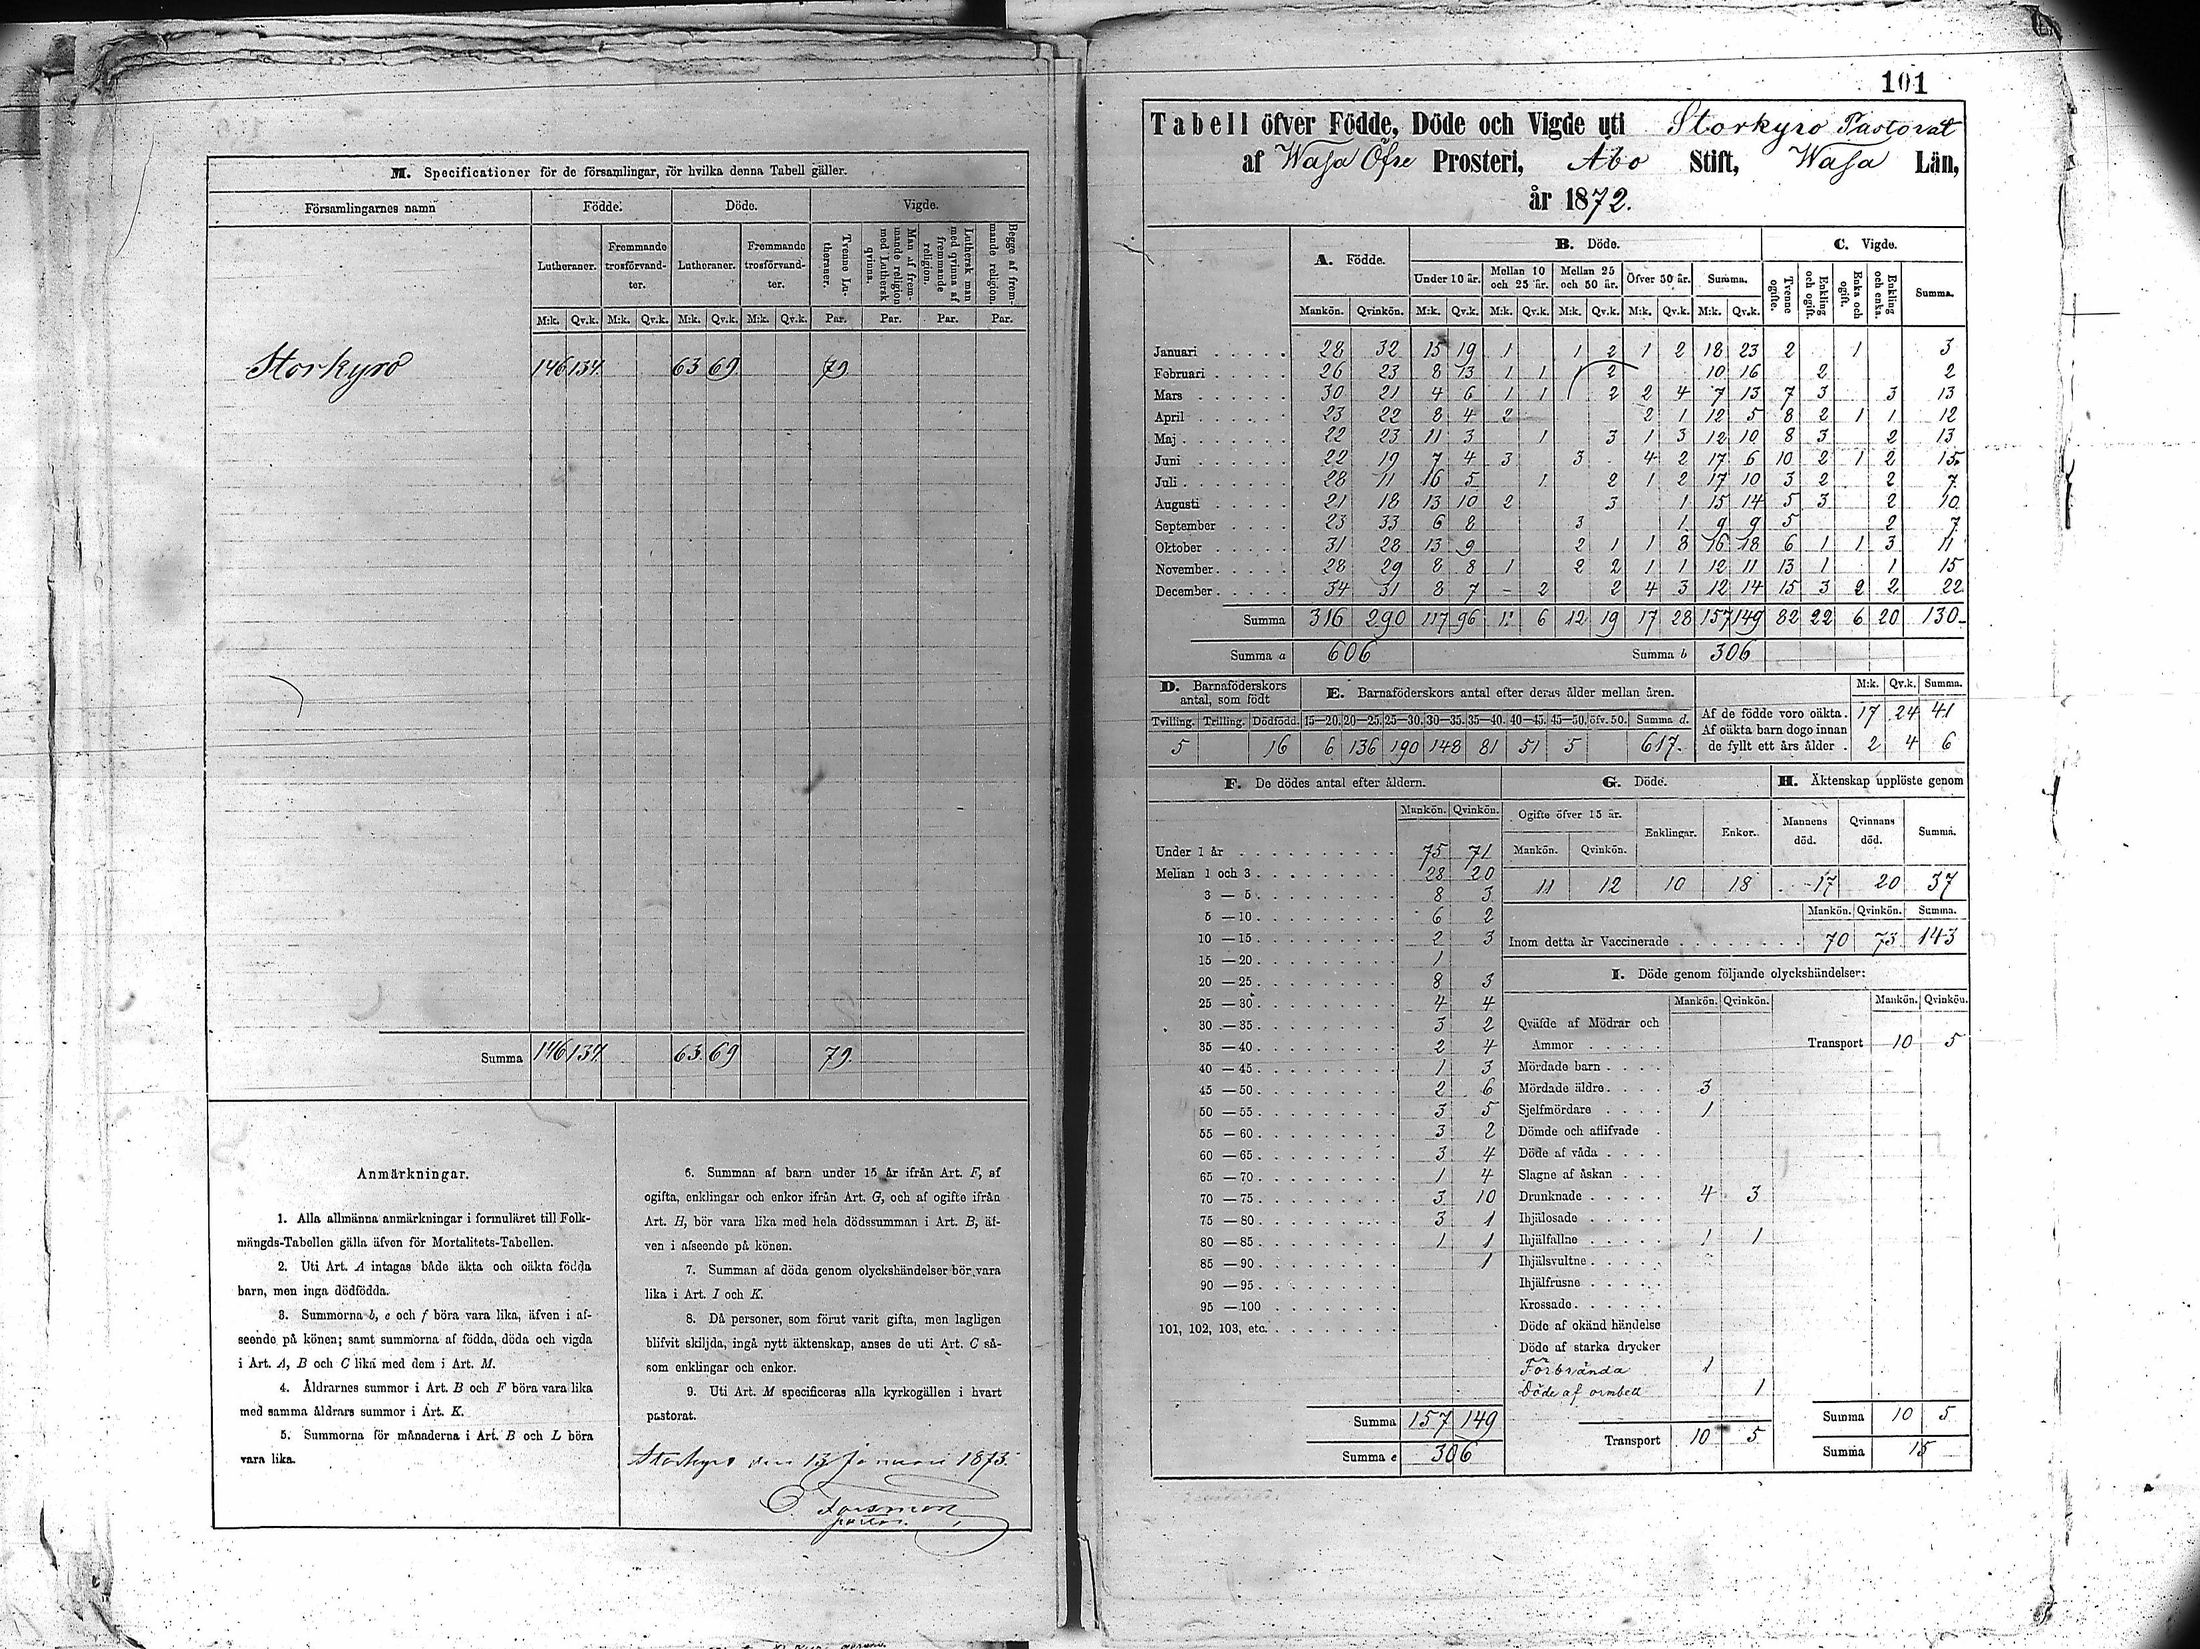 M. Specificationer för de församlingar, för hvilka denna Tabell gäller.
Församlingarnes namn Födde. Döde. Vigde.
Lutheraner. Fremmande trosförvandter. Lutheraner. Fremmande trosförvandter. Tvenne Lutheraner. Man af fremmande religion med Luthersk qvinna. Luthersk man med qvinna af fremmande religion. Begge af fremmande religion.
M:k. Qv.k. M:k. Qv.k. M:k. Qv.k. M:k. Qv.k. Par. Par. Par. Par.
Storkyro 146 134 63 69 79
Summa 146 134 63 69 79.
Anmärkningar.
1. Alla allmänna anmärkningar i formuläret till Folk-
mängds-Tabellen gälla äfven för Mortalitets-Tabellen.
2. Uti Art. A intagas både äkta och oäkta födda
barn, men inga dödfödda.
3. Summorna b, e och f böra vara lika, äfven i af-
seende på könen; samt summorna af födda, döda och vigda
i Art. A, B och C lika med dem i Art. M.
4. Åldrarnes summor i Art. B och F böra vara lika
med samma åldrars summor i Art. K.
5. Summorna för månaderna i Art. B och L böra
vara lika.
6. Summan af barn under 15 år ifrån Art. F, af
ogifta, enklingar och enkor ifrån Art. G, och af ogifte ifrån
Art. H, bör vara lika med hela dödssumman i Art. B, äf-
ven i afseende på könen.
7. Summan af döda genom olyckshändelser bör vara
lika i Art. I och K.
8. Då personer, som förut varit gifta, men lagligen
blifvit skiljda, ingå nytt äktenskap, anses de uti Art. C så-
som enklingar och enkor.
9. Uti Art. M specificeras alla kyrkogällen i hvart
pastorat.
Storkyro den 13 Januari 1873.
C. Forsman
pastor.
101
Tabell öfver Födde, Döde och Vigde uti Storkyro Pastorat
af Wasa Öfre Prosteri, Åbo Stift, Wasa Län,
år 1872.
A. Födde. B. Döde. C. Vigde.
Under 10 år. Mellan 10 och 25 år. Mellan 25 och 50 år. Öfver 50 år. Summa. Tvenne ogifte. Enkling och ogift. Enka och ogift. Enkling och enka. Summa.
Mankön. Qvinkön. M:k. Qv.k. M:k. Qv.k. M:k. Qv.k. M:k. Qv.k. M:k. Qv.k.
Januari 28 32 15 19 1 1 2 1 2 18 23 2 1 3
Februari 26 23 8 13 1 1 1 2 10 16 2 2
Mars 30 21 4 6 1 1 2 2 4 7 13 7 3 3 13
April 23 22 8 4 2 2 1 12 5 8 2 1 1 12
Maj 22 23 11 3 1 3 1 3 12 10 8 3 2 13
Juni 22 19 7 4 3 3 4 2 17 6 10 2 1 2 15
Juli 28 11 16 5 1 2 1 2 17 10 3 2 2 7
Augusti 21 18 13 10 2 3 1 15 14 5 3 2 10
September 23 33 6 8 3 1 9 9 5 2 7
Oktober 31 28 13 9 2 1 1 8 16 18 6 1 1 3 11
November 28 29 8 8 1 2 2 1 1 12 11 13 1 1 15
December 34 31 8 7 - 2 2 4 3 12 14 15 3 2 2 22
Summa 316 290 117 96 11 6 12 19 17 28 157 149 82 22 6 20 130
Summa a 606 Summa b 306
D. Barnaföderskors antal, som födt
E. Barnaföderskors antal efter deras ålder mellan åren.
M:k. Qv.k. Summa.
Tvilling. Trilling. Dödfödd. 15—20. 20—25. 25—30. 30—35. 35—40. 40—45. 45—50. öfv. 50. Summa d.
5 16 6 136 190 148 81 51 5 617.
Af de födde voro oäkta. 17 24 41
Af oäkta barn dogo innan
de fyllt ett års ålder . 2 4 6
F. De dödes antal efter åldern.
Mankön. Qvinkön.
Under 1 år 75 71
Mellan 1 och 3 28 20
3 — 5 8 3
5 —10 6 2
10 —15 2 3
15 —20 1
20 —25 8 3
25 —30 4 4
30 —35 3 2
35 —40 2 4
40 —45 1 3
45 —50 2 6
50 —55 3 5
55 —60 3 2
60 —65 3 4
65 —70 1 4
70 —75 3 10
75 —80 3 1
80 —85 1 1
85 —90 1
90 —95
95 —100
101, 102, 103, etc.
Summa 157 149
Summa e 306
G. Döde.
Ogifte öfver 15 år. Enklingar. Enkor.
Mankön. Qvinkön.
11 12 10 18
H. Äktenskap upplöste genom
Mannens död. Qvinnans död. Summa.
17 20 37
Mankön. Qvinkön. Summa.
Inom detta år Vaccinerade 70 73 143
I. Döde genom följande olyckshändelser:
Mankön. Qvinkön. Mankön. Qvinkön.
Qväfde af Mödrar och
Ammor
Transport 10 5
Mördade barn
Mördade äldre 3
Sjelfmördare 1
Dömde och aflifvade
Döde af våda
Slagne af åskan
Drunknade 4 3
Ihjälosade
Ihjälfallne 1 1
Ihjälsvultne
Ihjälfrusne
Krossade
Döde af okänd händelse
Döde af starka drycker
Förbrända 1
Döde af ormbett 1
Transport 10 5
Summa 10 5
Summa 15